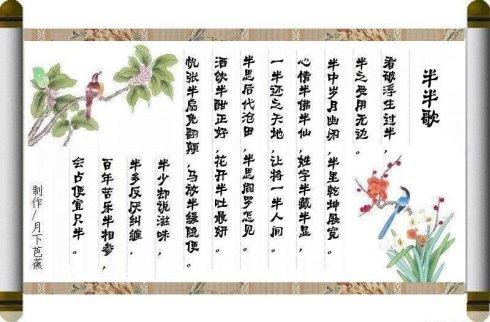 半半歌
看破浮生过半，
半之受用无边。
半中岁月幽闲，半里乾坤展宽。
心情半佛半仙，姓字半藏半显，
一半还之天地，让将一半人间。
半思后代沧田，半思阎罗怎见。
酒饮半酣正好，花开半吐最妍。
帆张半扇免翻颠，马放半缰稳便。
半少却饶滋味，
半多反厌纠缠。
百年苦乐半相参，
会占便宜只半。
制作/月下芭蕉